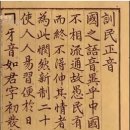 訓民正音
國之語音異乎中國
不相流通故愚民有
而終不得伸其情者
為此憫然新制二十
人人易習便於日
ㄱ牙音如君字初發